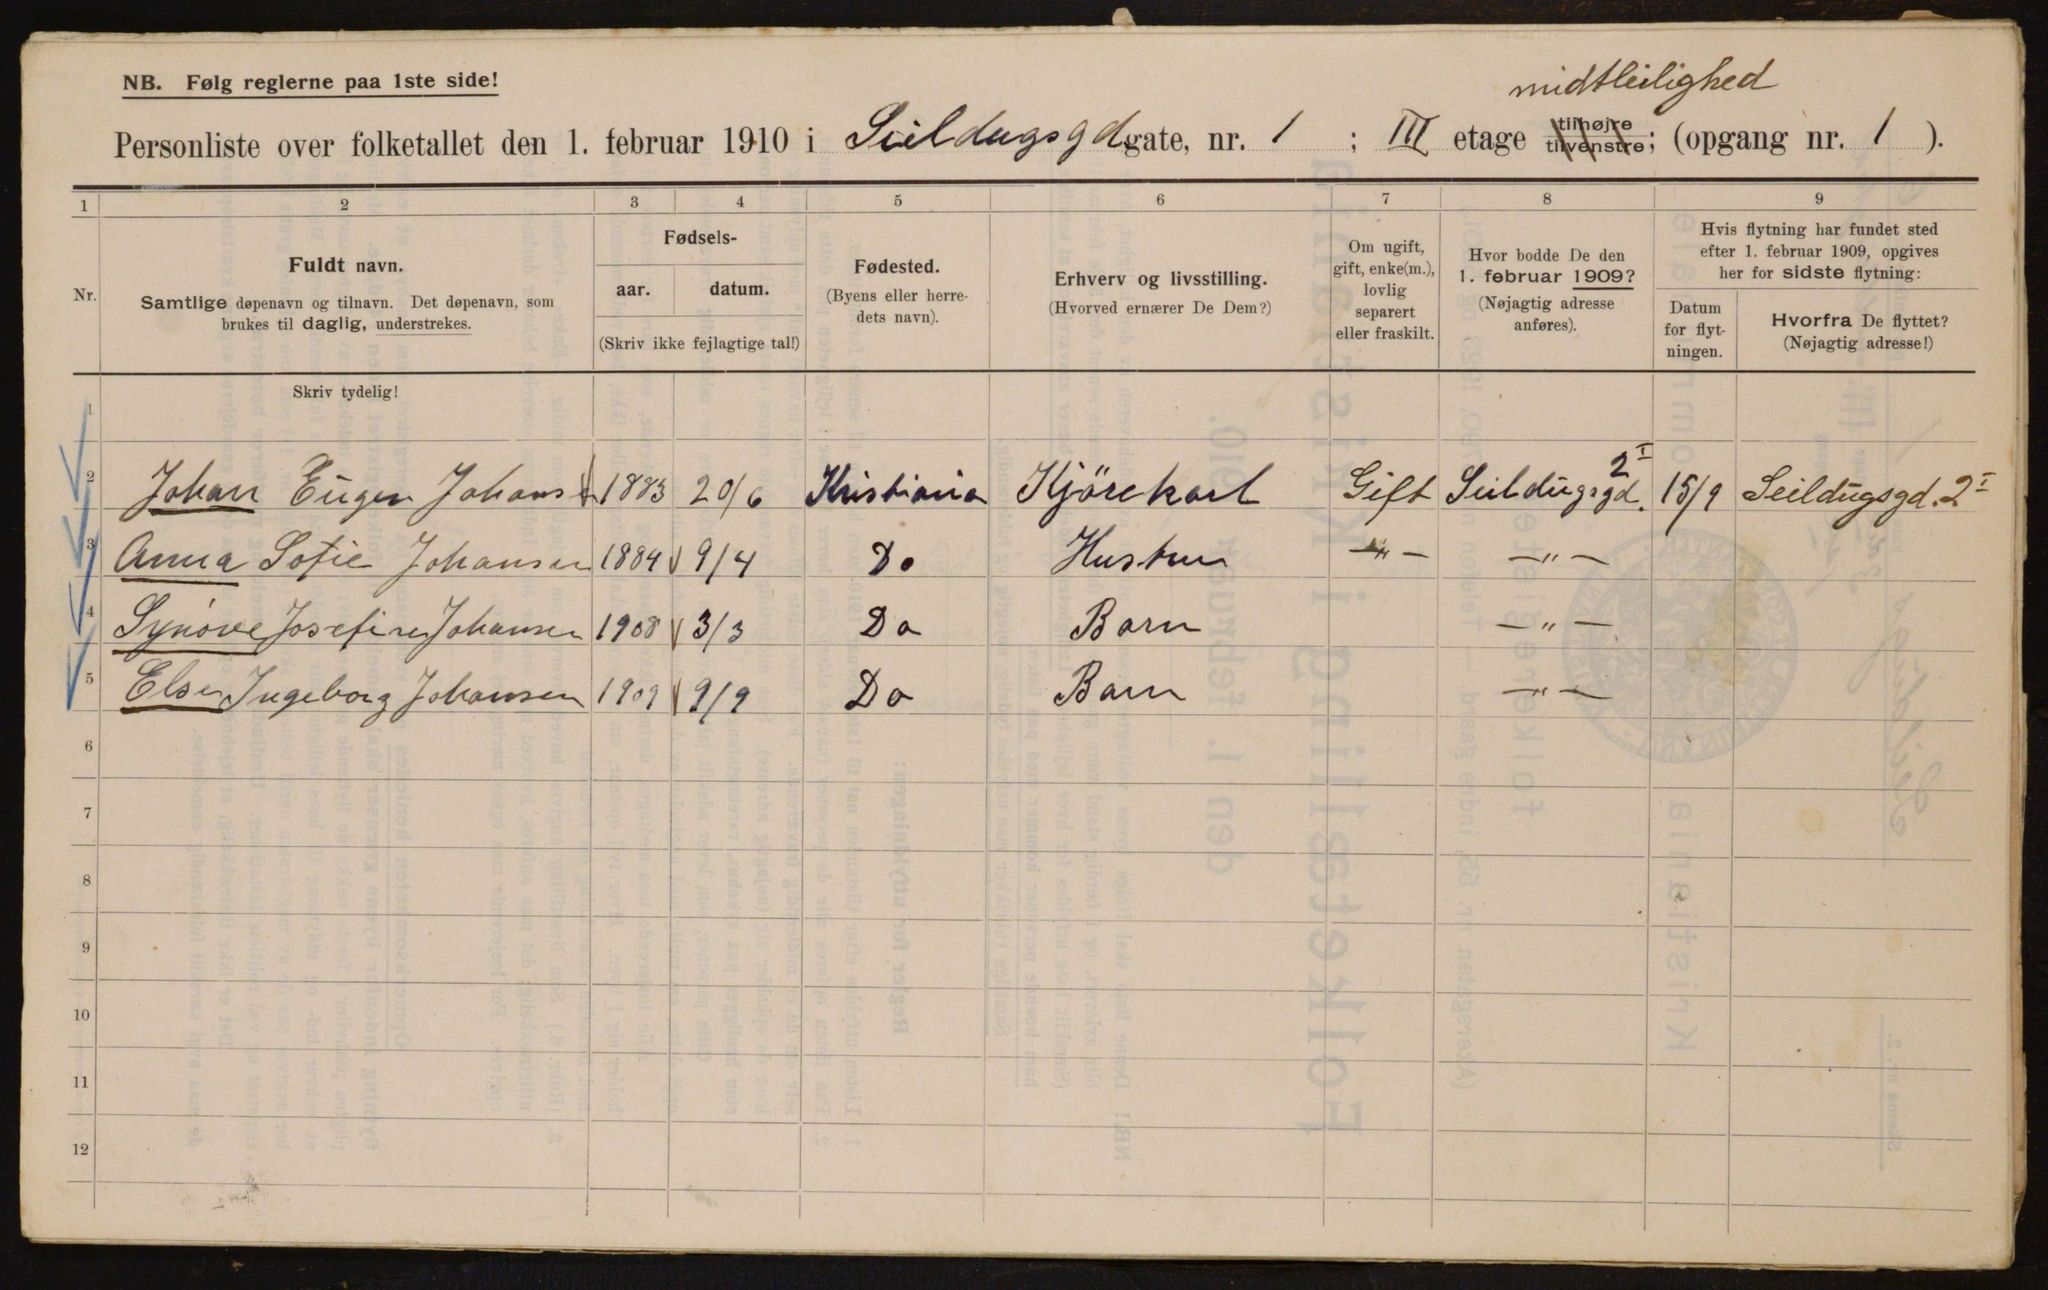 NB. Følg reglerne paa 1ste side!
midtleilighed
Personliste over folketallet den 1. februar 1910 i Seildugsgd gate, nr. 1 ; III etage tilhøjre tilvenstre; (opgang nr. 1 ).
1 2 3 4 5 6 7 8 9
Nr.
Fuldt navn.
Samtlige døpenavn og tilnavn. Det døpenavn, som
brukes til daglig, understrekes.
Fødsels-
aar. datum.
(Skriv ikke fejlagtige tal!)
Fødested.
(Byens eller herre-
dets navn).
Erhverv og livsstilling.
(Hvorved ernærer De Dem?)
Om ugift,
gift, enke(m.),
lovlig
separert
eller fraskilt.
Hvor bodde De den
1. februar 1909?
(Nøjagtig adresse
anføres).
Hvis flytning har fundet sted
efter 1. februar 1909, opgives
her for sidste flytning:
Datum
for flyt-
ningen.
Hvorfra De flyttet?
(Nøjagtig adresse!)
Skriv tydelig!
1
2 Johan Eugen Johans 1883 20/6 Kristiania Kjörekarl Gift Seildugsgd. 2 I 15/9 Seildugsgd. 2 I
3 Anna Sofie Johansen 1884 9/4 Do Hustru —„— —„—
4 Synöve Josefine Johansen 1908 3/3 Do Barn —„—
5 Else Ingeborg Johansen 1909 9/9 Do Barn —„—
6
7
8
9
10
11
12